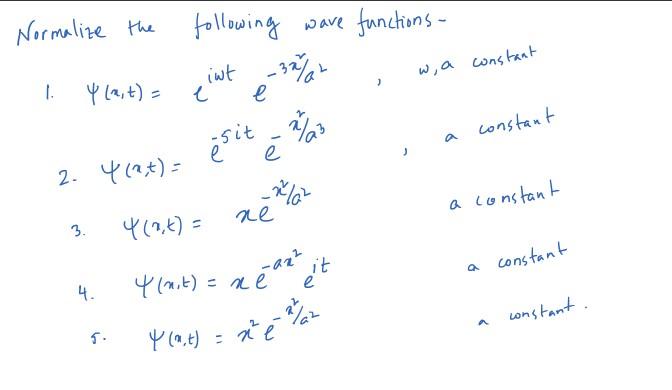 Normalize the following wave functions -
1. ψ(x,t) = e^{iwt} e^{-3x²/a²} , w,a constant
2. ψ(x,t) = e^{-5it} e^{-x²/a³} , a constant
3. ψ(x,t) = xe^{-x²/a²} a constant
4. ψ(x,t) = xe^{-ax²} e^{it} a constant
5. ψ(x,t) = x² e^{-x²/a²} a constant.